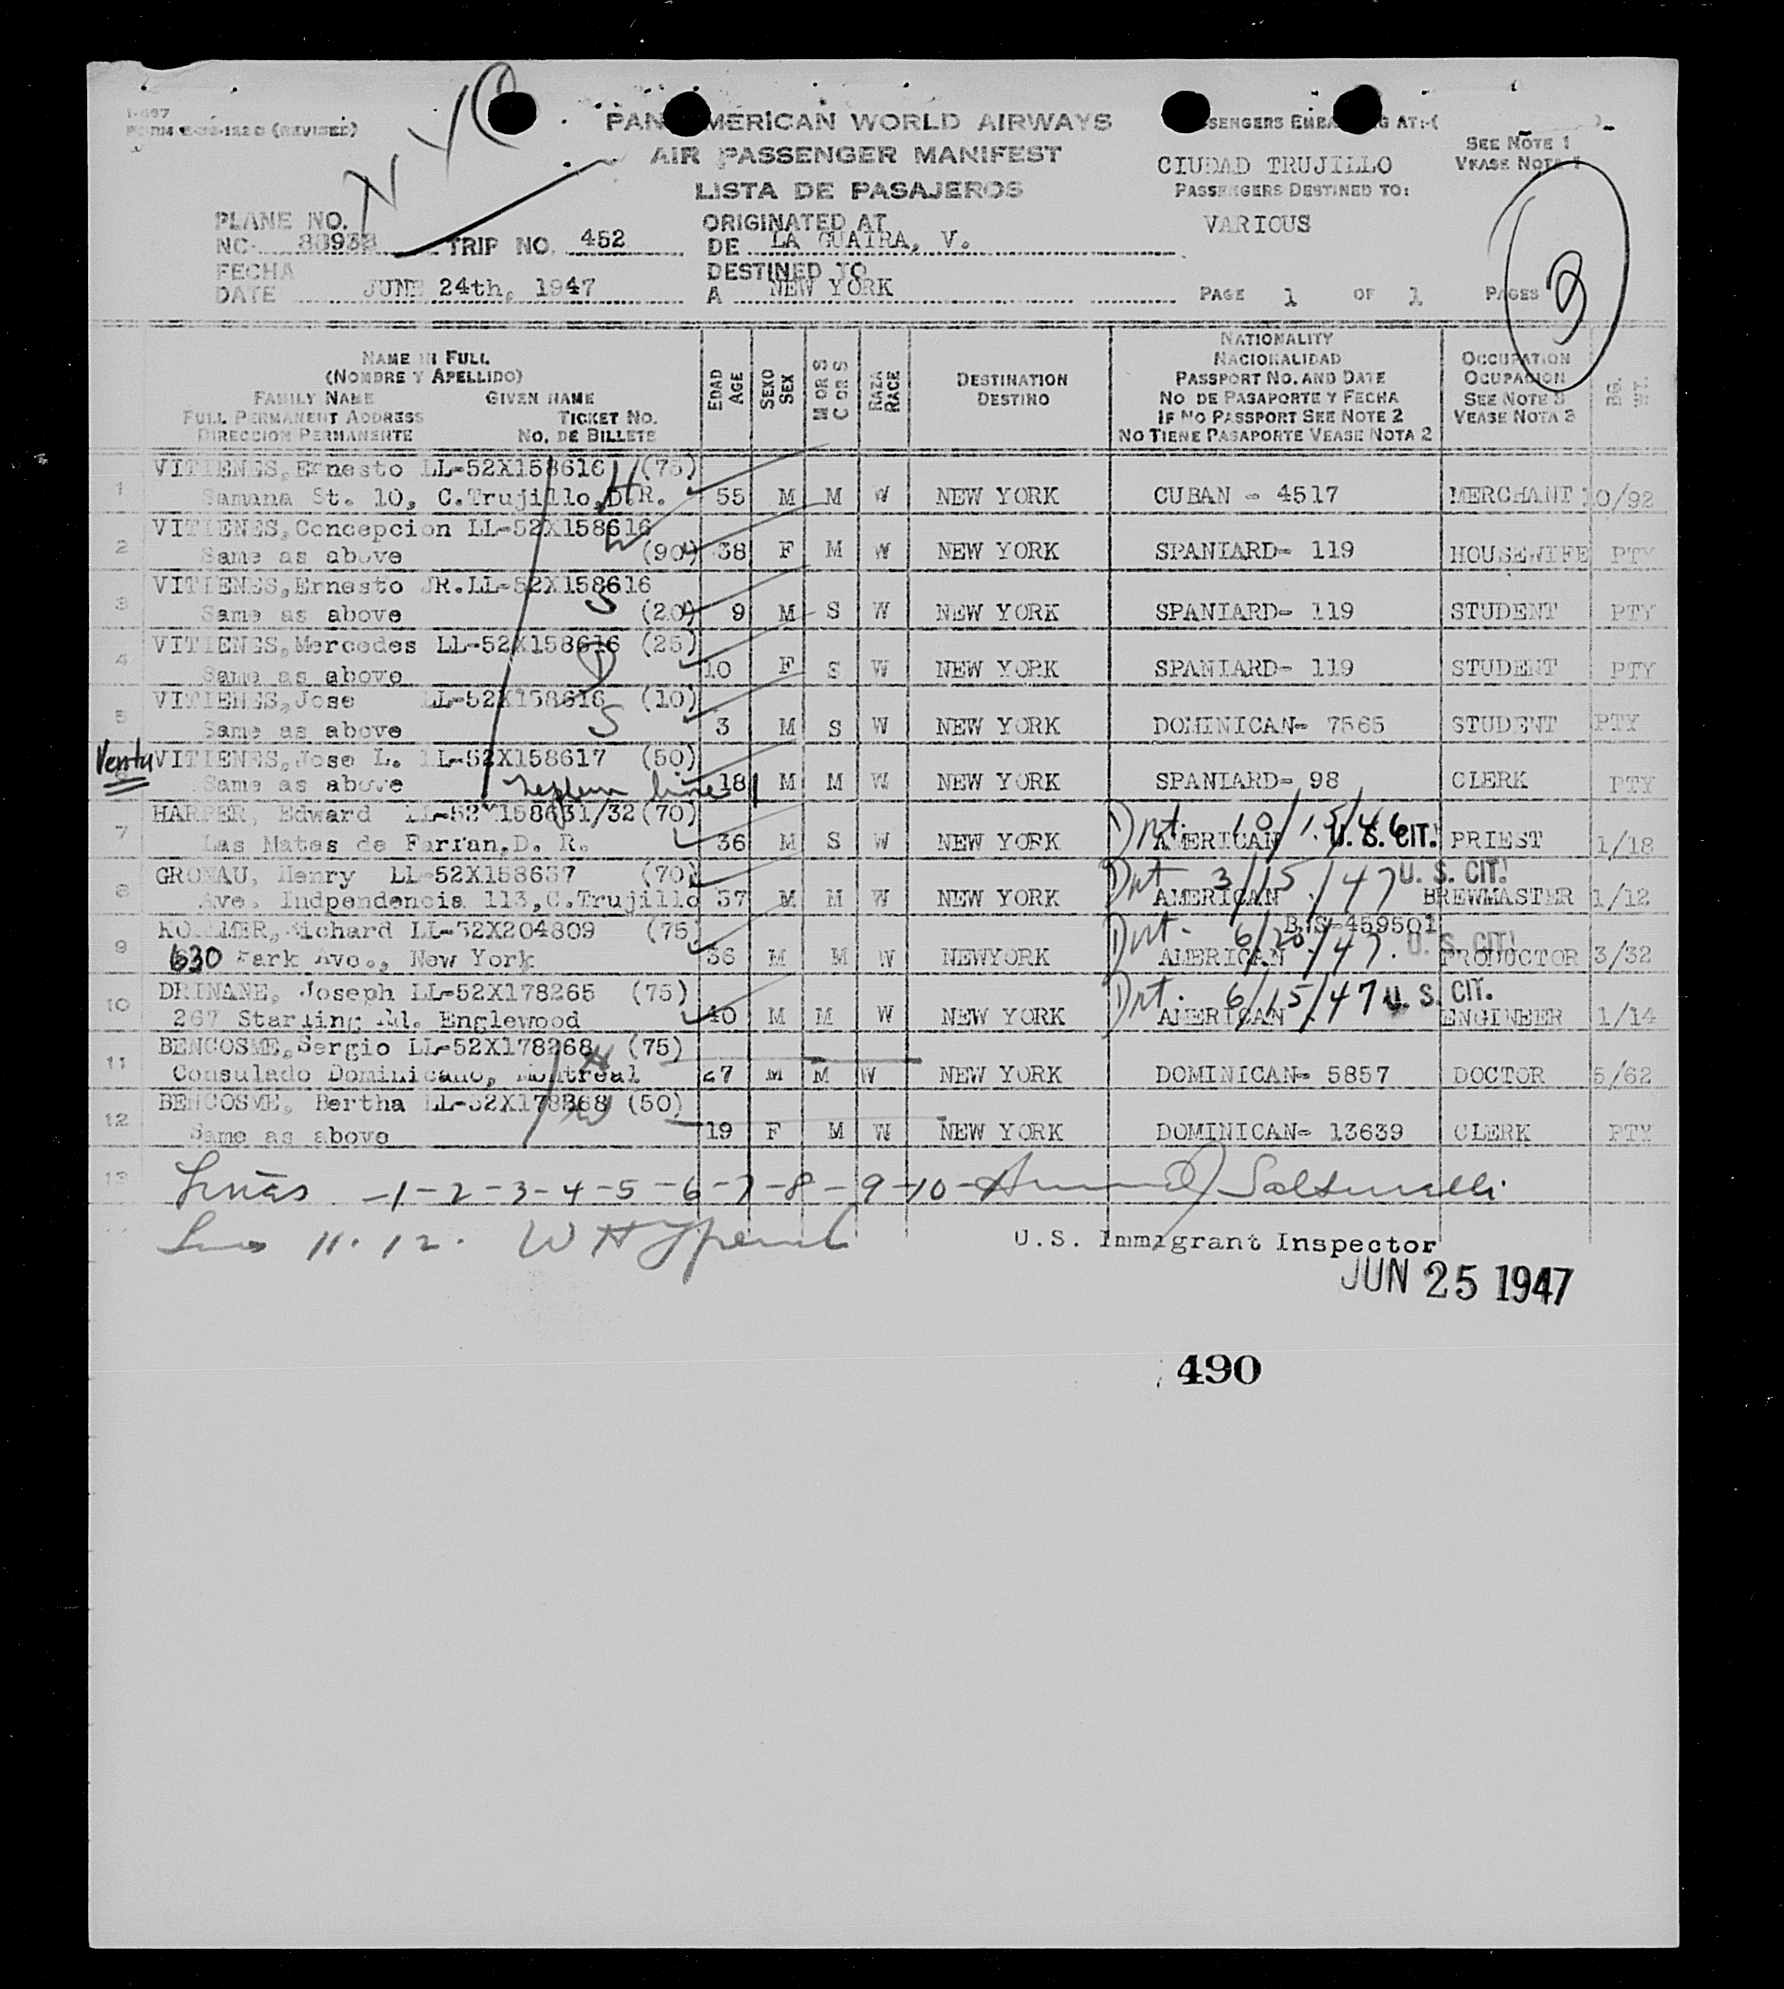 NYC
PAN AMERICAN WORLD AIRWAYS
AIR PASSENGER MANIFEST
LISTA DE PASAJEROS
PASSENGERS EMBARKING AT:-(
CIUDAD TRUJILLO
PASSENGERS DESTINED TO:
VARIOUS
SEE NOTE 1
VEASE NOTA 1
PLANE NO.
NC- TRIP NO. 452
FECHA
DATE JUNE 24th, 1947
ORIGINATED AT
DE LA GUAIRA, V.
DESTINED TO
A NEW YORK
PAGE 1 OF 1 PAGES
NAME IN FULL
(NOMBRE Y APELLIDO)
FAMILY NAME GIVEN NAME
FULL PERMANENT ADDRESS TICKET NO.
DIRECCION PERMANENTE NO. DE BILLETE
EDAD AGE
SEXO SEX
M OR S C O R S
RAZA RACE
DESTINATION
DESTINO
NATIONALITY
NACIONALIDAD
PASSPORT NO. AND DATE
NO. DE PASAPORTE Y FECHA
IF NO PASSPORT SEE NOTE 2
NO TIENE PASAPORTE VEASE NOTA 2
OCCUPATION
OCUPACION
SEE NOTE 3
VEASE NOTA 3
VITIENES, Ernesto LL-52X158616 (75) H
1 Samana St. 10, C.Trujillo, D.R. 55 M M W NEW YORK CUBAN - 4517 MERCHANT 10/92
VITIENES, Concepcion LL-52X158616 W
2 Same as above (90) 38 F M W NEW YORK SPANIARD- 119 HOUSEWIFE PTY
VITIENES, Ernesto JR. LL-52X158616 S
3 Same as above (20) 9 M S W NEW YORK SPANIARD- 119 STUDENT PTY
VITIENES, Mercedes LL-52X158616 (25) D
4 Same as above 10 F S W NEW YORK SPANIARD- 119 STUDENT PTY
VITIENES, Jose LL-52X158616 (10) S
5 Same as above 3 M S W NEW YORK DOMINICAN- 7565 STUDENT PTY
VITIENES, Jose L. LL-52X158617 (50)
Same as above 18 M M W NEW YORK SPANIARD- 98 CLERK PTY
HARPER, Edward LL-52X158631/32 (70) Dpt. 10/15/46 U. S. CIT.
7 Las Matas de Farfan, D. R. 36 M S W NEW YORK AMERICAN PRIEST 1/18
GRONAU, Henry LL-52X158637 (70) Dpt 3/15/47 U. S. CIT.
8 Ave. Indpendencia 113, C.Trujillo 57 M M W NEW YORK AMERICAN BREWMASTER 1/12
KOLLMER, Richard LL-52X204809 (75 Dpt. 6/20/47. B.S-459501 U. S. CIT.
9 630 Park Ave., New York 36 M M W NEWYORK AMERICAN PRODUCTOR 3/32
DRINANE, Joseph LL-52X178265 (75) Dpt. 6/15/47 U. S. CIT.
10 267 Starling Rd. Englewood 40 M M W NEW YORK AMERICAN ENGINEER 1/14
BENCOSME, Sergio LL-52X178268 (75) H
11 Consulado Dominicano, Montreal 27 M M W NEW YORK DOMINICAN- 5857 DOCTOR 5/62
BENCOSME, Bertha LL-52X178368 (50) W
12 Same as above 19 F M W NEW YORK DOMINICAN- 13639 CLERK PTY
13 Lines -1-2-3-4-5-6-7-8-9-10-
Lines 11. 12.
U.S. Immigrant Inspector
JUN 25 1947
490